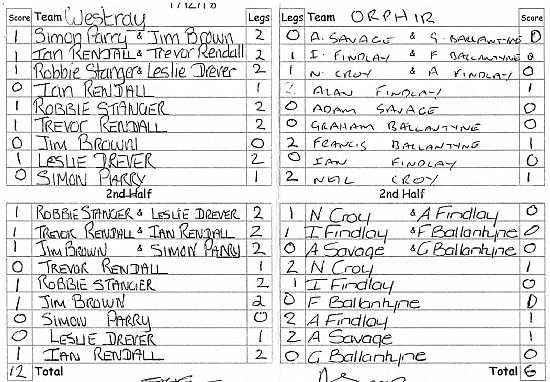 1/12/18
Score Team Westray Legs Legs Team ORPHIR Score
1 Simon Parry & Jim Brown 2 0 A. SAVAGE & G. BALLANTYNE 0
1 Ian RENDALL & Trevor Rendall 2 1 I. FINDLAY & F BALLANTYNE 0
1 Robbie Stanger & Leslie Drever 2 1 N. CROY & A FINDLAY 0
0 Ian RENDALL 1 2 ALAN FINDLAY 1
1 ROBBIE STANGER 2 0 ADAM SAVAGE 0
1 TREVOR RENDALL 2 0 GRAHAM BALLANTYNE 0
0 Jim BROWN 0 2 FRANCIS BALLANTYNE 1
1 LESLIE DREVER 2 0 IAN FINDLAY 0
0 SIMON PARRY 1 2 NEIL CROY 1
2nd Half 2nd Half
1 ROBBIE STANGER & LESLIE DREVER 2 1 N Croy & A Findlay 0
1 TREVOR RENDALL & IAN RENDALL 2 1 I Findlay & F Ballantyne 0
1 Jim BROWN & SIMON PARRY 2 0 A Savage & G Ballantyne 0
0 TREVOR RENDALL 1 2 N Croy 1
1 ROBBIE STANGER 2 1 I Findlay 0
1 JIM BROWN 2 0 F Ballantyne 0
0 SIMON PARRY 0 2 A Findlay 1
0 LESLIE DREVER 1 2 A Savage 1
1 IAN RENDALL 2 0 G Ballantyne 0
12 Total Total 6